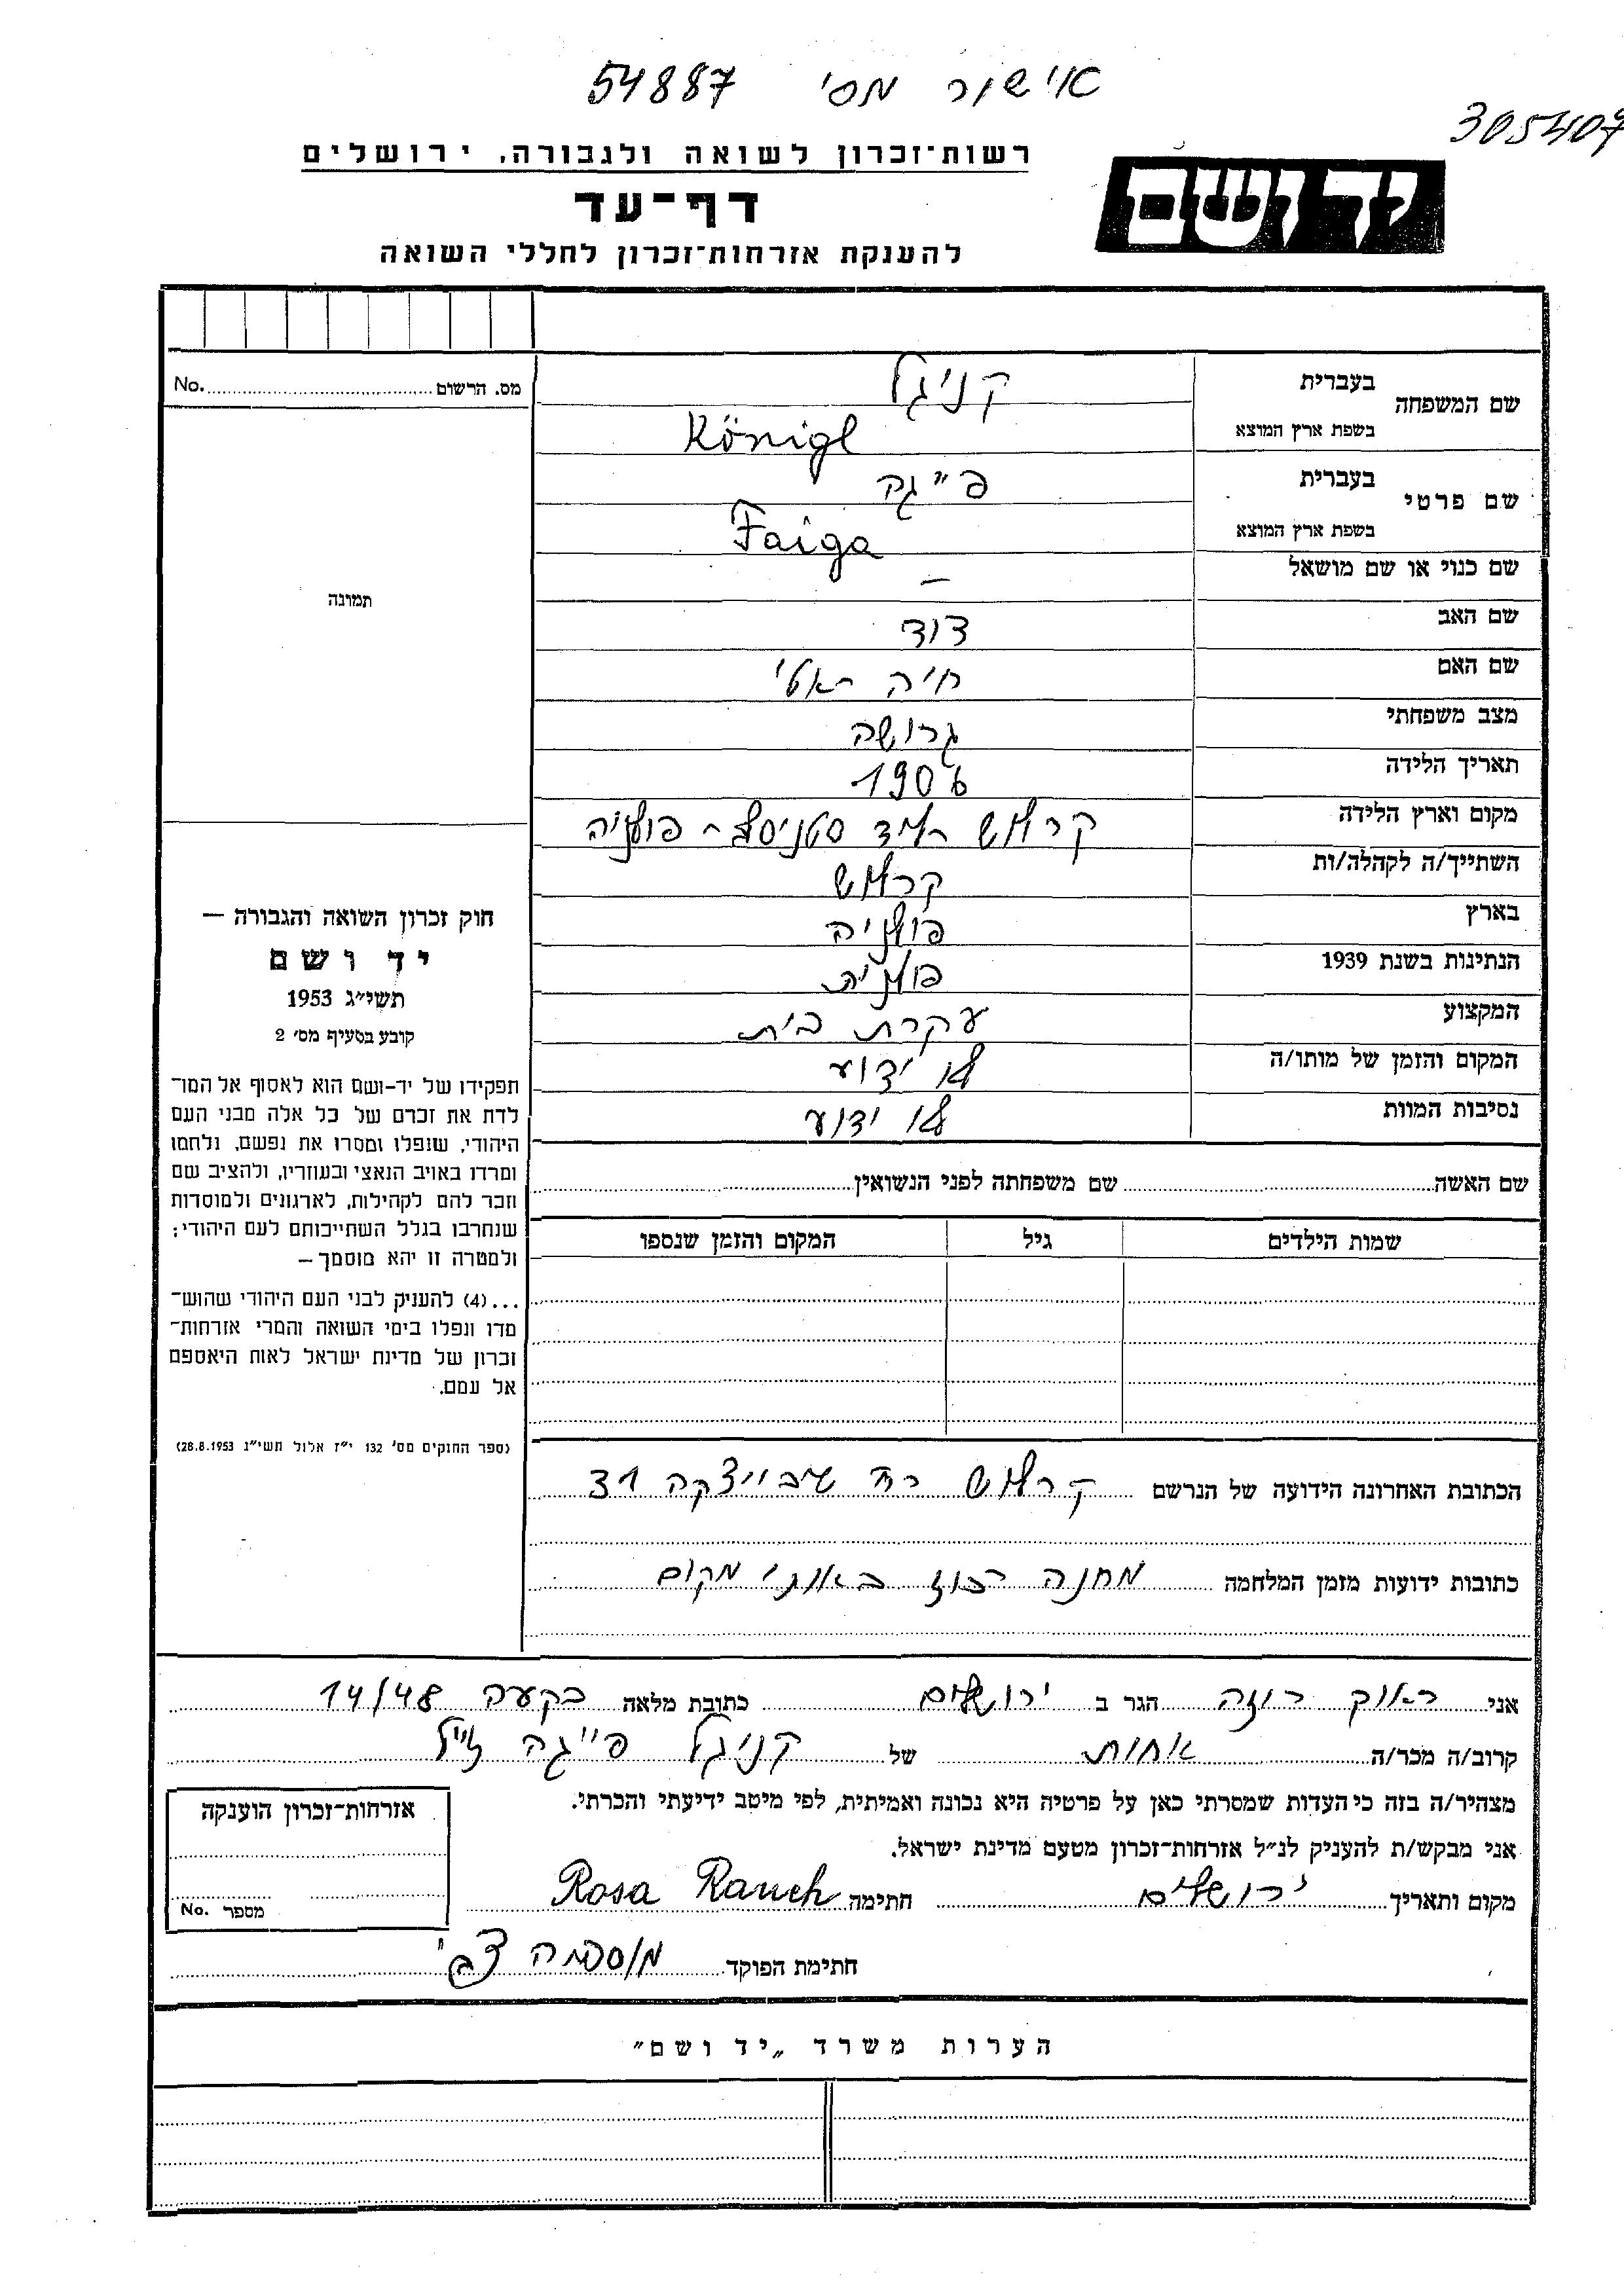 אישור מס' 54887
305407
רשות־זכרון לשואה ולגבורה, ירושלים
יד ושם
דף־עד
להענקת אזרחות־זכרון לחללי השואה
מס. הרשום No.
תמונה
שם המשפחה
בעברית קניגל
בשפת ארץ המוצא Königl
שם פרטי
בעברית פייגה
בשפת ארץ המוצא Faiga
שם כנוי או שם מושאל –
שם האב דוד
שם האם חיה ראטי
מצב משפחתי גרושה
תאריך הלידה 1906
מקום וארץ הלידה קאלוש ליד סטניסלב - פולניה
השתייך/ה לקהלה/ות קאלוש
בארץ פולניה
הנתינות בשנת 1939 פולנית
המקצוע עקרת בית
המקום והזמן של מותו/ה לא ידוע
נסיבות המוות לא ידוע
חוק זכרון השואה והגבורה —
יד ושם
תשי״ג 1953
קובע בסעיף מס׳ 2
תפקידו של יד־ושם הוא לאסוף אל המו־
לדת את זכרם של כל אלה מבני העם
היהודי, שנפלו ומסרו את נפשם, נלחמו
ומרדו באויב הנאצי ובעוזריו, ולהציב שם
וזכר להם לקהילות, לארגונים ולמוסדות
שנחרבו בגלל השתייכותם לעם היהודי;
ולמטרה זו יהא מוסמך —
...(4) להעניק לבני העם היהודי שהוש־
מדו ונפלו בימי השואה והמרי אזרחות־
זכרון של מדינת ישראל לאות היאספם
אל עמם.
(ספר החוקים מס׳ 132 י״ז אלול תשי״ג 28.8.1953)
שם האשה שם משפחתה לפני הנשואין
שמות הילדים גיל המקום והזמן שנספו
הכתובת האחרונה הידועה של הנרשם רח' 31
כתובות ידועות מזמן המלחמה מחנה רכוז באותו מקום
אני ראוך רוזה הגר ב ירושלים כתובת מלאה בקעה 14/48
קרוב/ה מכר/ה אחות של קניגל פייגה ז"ל
מצהיר/ה בזה כי העדות שמסרתי כאן על פרטיה היא נכונה ואמיתית, לפי מיטב ידיעתי והכרתי.
אני מבקש/ת להעניק לנ״ל אזרחות־זכרון מטעם מדינת ישראל.
מקום ותאריך ירושלים חתימה Rosa Rauch
חתימת הפוקד
אזרחות־זכרון הוענקה
מספר No.
הערות משרד „יד ושם״